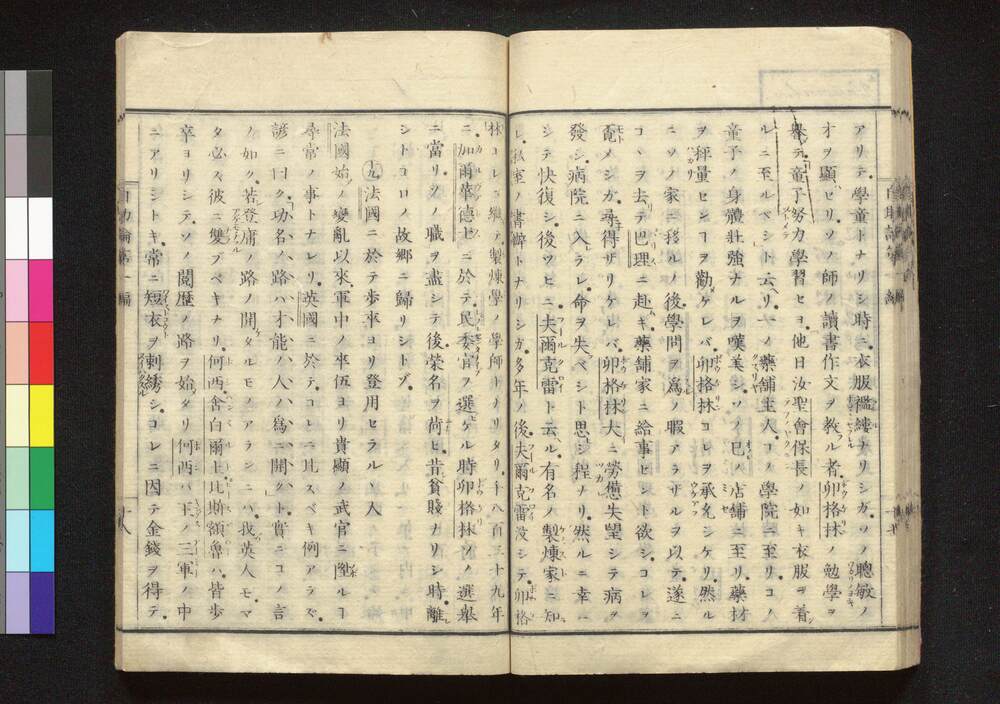 アリテ學童トナリシ時ニ衣服襤縷ナリシガソノ聰敏ノ
才ヲ顯ハセリソノ師ノ讀書作文ヲ教ル者卯格林ノ勉學ヲ
譽テ童子努力學習セヨ他日汝聖會保長ノ如キ衣服ヲ着
ルニ至ルベシト云リ一ノ藥舗主人コノ學院ニ至リコノ
童子ノ身體壯強ナルヲ嘆美シソノ己ノ店舗ニ至リ藥材
ヲ秤量センヿヲ勸ケレバ卯格林コレヲ承允シケリ然ル
ニソノ家ニ移ルノ後學問ヲ爲ノ暇アラザルヲ以テ遂ニ
コヽヲ去テ巴理ニ赴キ藥舗家ニ給事センヿヲ欲シコレヲ
覔メシガ尋得ザリケレバ卯格林大ニ勞憊失望シテ病ヲ
發シ病院ニ入ラレ命ヲ失ベシト思シ程ナリ然ルニ幸ニ
シテ快復シ後ツヒニ夫爾克雷ト云ル有名ノ製煉家ニ知
レ私室ノ書辧トナリシガ多年ノ後夫爾克雷没シテ卯格
林コレニ繼テ製煉學ノ學師トナリタリ千八百二十九年
ニカルヴァドス加爾華德士ニ於テ民委官ヲ選ケル時卯格林ソノ選擧
ニ當リソノ職ヲ盡シテ後榮名ヲ荷ヒ昔貧賤ナリシ時離
シトコロノ故郷ニ歸リシトゾ
十九 法國ニ於テ歩卒ヨリ登用セラルヽ人
法國始ノ變亂以來軍中ノ卒伍ヨリ貴顯ノ武官ニ陞ルヿ
尋常ノ事トナレリ英國ニ於テコレニ比スベキ例アラズ
諺ニ曰ク功名ノ路ハ才能ノ人ノ爲ニ開クト實ニコノ言
ノ如ク若登庸ノ路ノ開タルモノアランニハ我英人モマ
タ必ズ彼ニ雙ブベキナリ何西舍白爾土比斯額魯ハ皆歩
卒ヨリシテソノ閲歴ノ路ヲ始タリ何西ハ王ノ三軍ノ中
ニアリシトキ常ニ短衣ヲ刺綉シコレニ因テ金錢ヲ得テ
自助論第一編